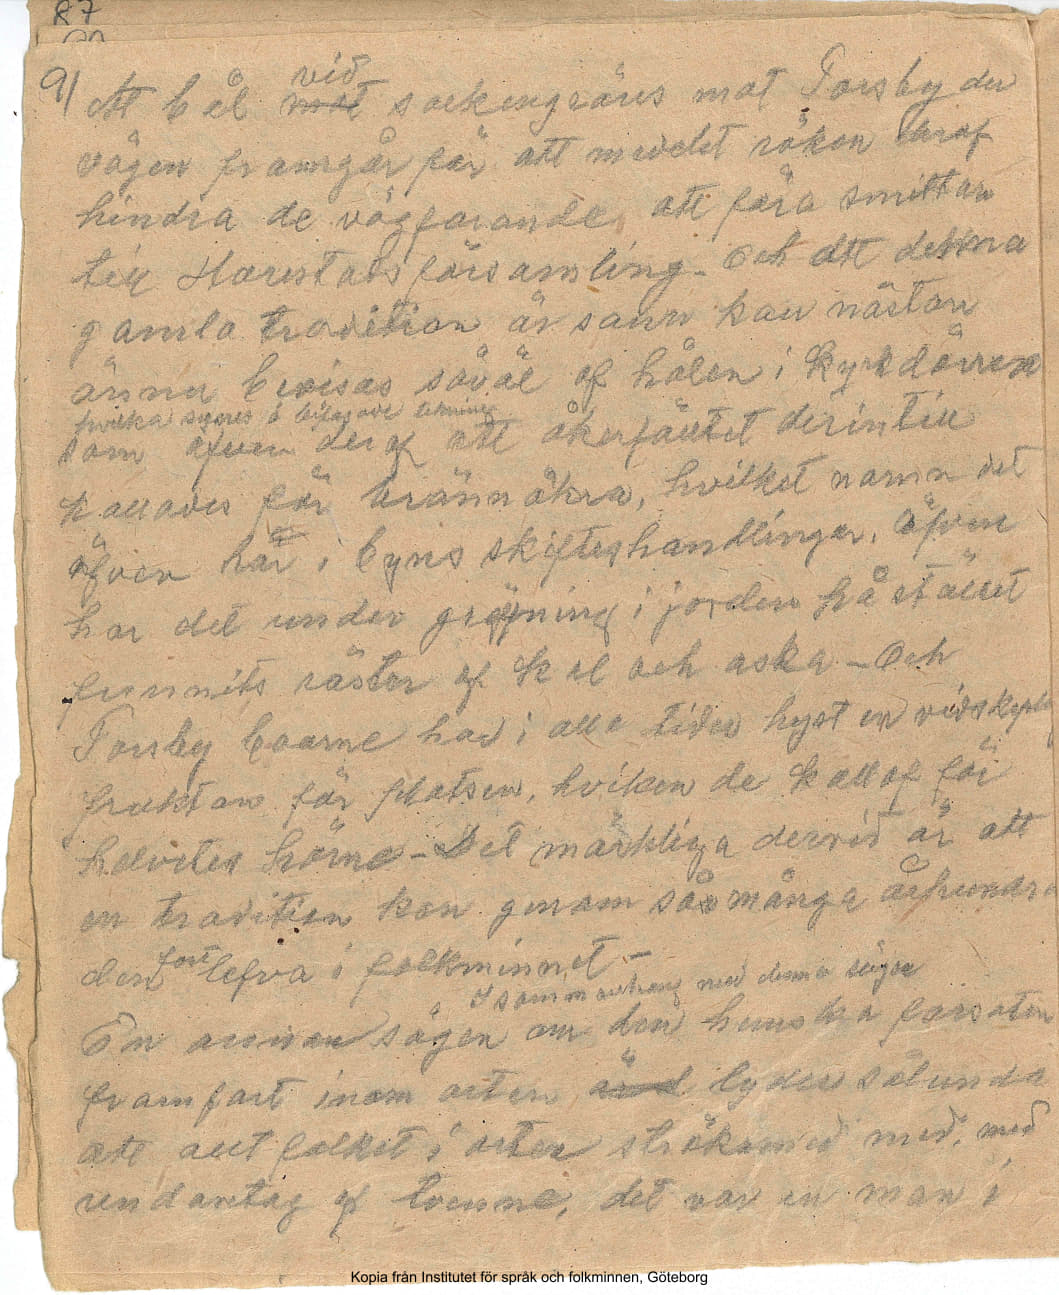 87
91
vid
Att bål mot sockengräns mot Torsby der
vägen framgår för att medelst röken deraf
hindra de vägfarande att föra smittan
till Harestads församling - Och att denna
gamla tradition är sann kan nästan
ännu bevisas såväl af hålen i kyrkdörren
hvilka synes å bifogade teckning
som äfven deraf att åkerfältet derintill
kallades för brännåkra, hvilket namn det
äfven har i byns skifteshandlingar. Äfven
har det under gräfning i jorden på stället
funnits räster af kol och aska - Och
Torsby boarne har i alla tider hyst en vidskeplig
fruktan för platsen, hviken de kallat för
helvetes hörne - Det märkliga dervid är att
en tradition kan genom så många århundra
den fort lefva i folkminnet -
I sammanhang med denna sägne
En annan sägen om den hemska farsoten
framfart inom orten lyder sålunda
att allt folket i orten strök med, med
undantag af tvenne, det var en man i
Kopia från Institutet för språk och folkminnen, Göteborg